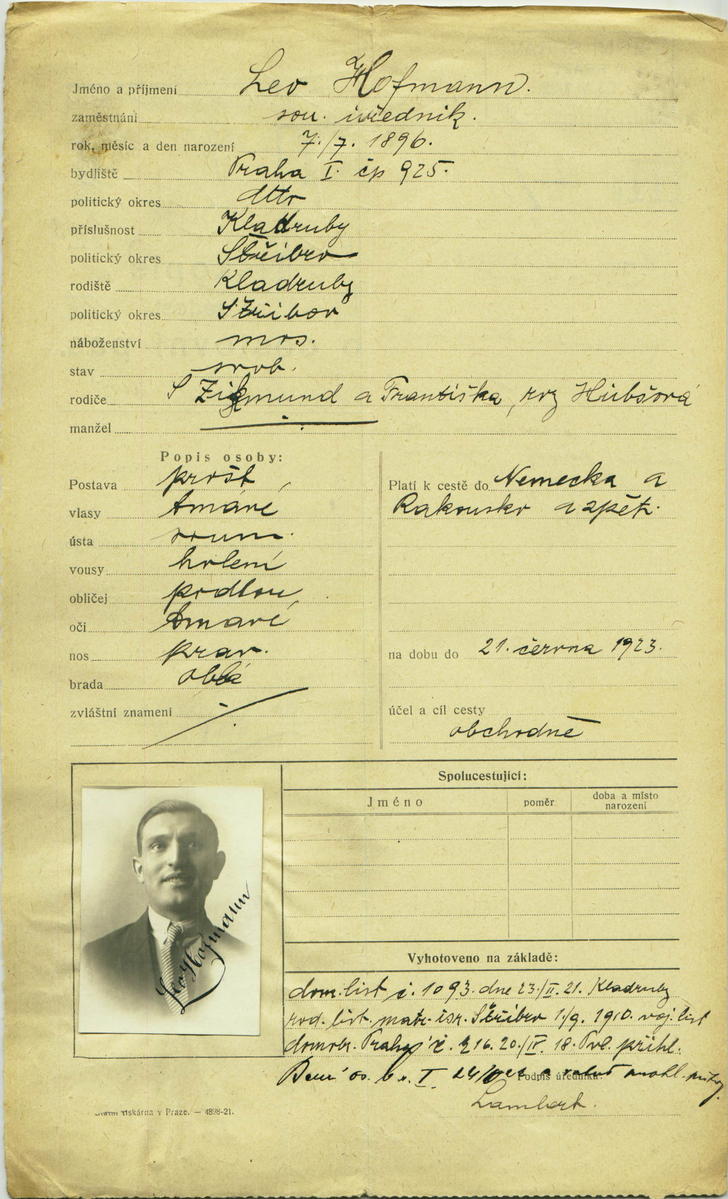 Jméno a příjmení Leo Hofmann.
zaměstnání sou. úředník.
rok, měsíc a den narození 7./7. 1896.
bydliště Praha I. čp 925.
politický okres dtto
příslušnost Kladruby
politický okres Stříbro
rodiště Kladruby
politický okres Stříbor
náboženství mos.
stav svob.
rodiče Zigmund a Františka, roz Hübšová
manžel
Popis osoby:
Postava prost
vlasy tmavé
ústa soum.
vousy holení
obličej podlou
oči tmavé
nos prav.
brada oblá
zvláštní znamení
Platí k cestě do Německa a
Rakousko a zpět.
na dobu do 21. června 1923.
účel a cíl cesty
obchodně
Leo Hofmann
Spolucestující:
Jméno poměr doba a místo
narození
Vyhotoveno na základě:
dom. list č. 1093. dne 23./II. 21. Kladruby
rod. list. matr. isr. Stříbro 1./9. 1910. voj. list
domobr. Praha č. 216. 20./IV. 18. Pol. přihl.
Podpis úředníka:
Lambert.
tiskárna v Praze. — 4898-21.